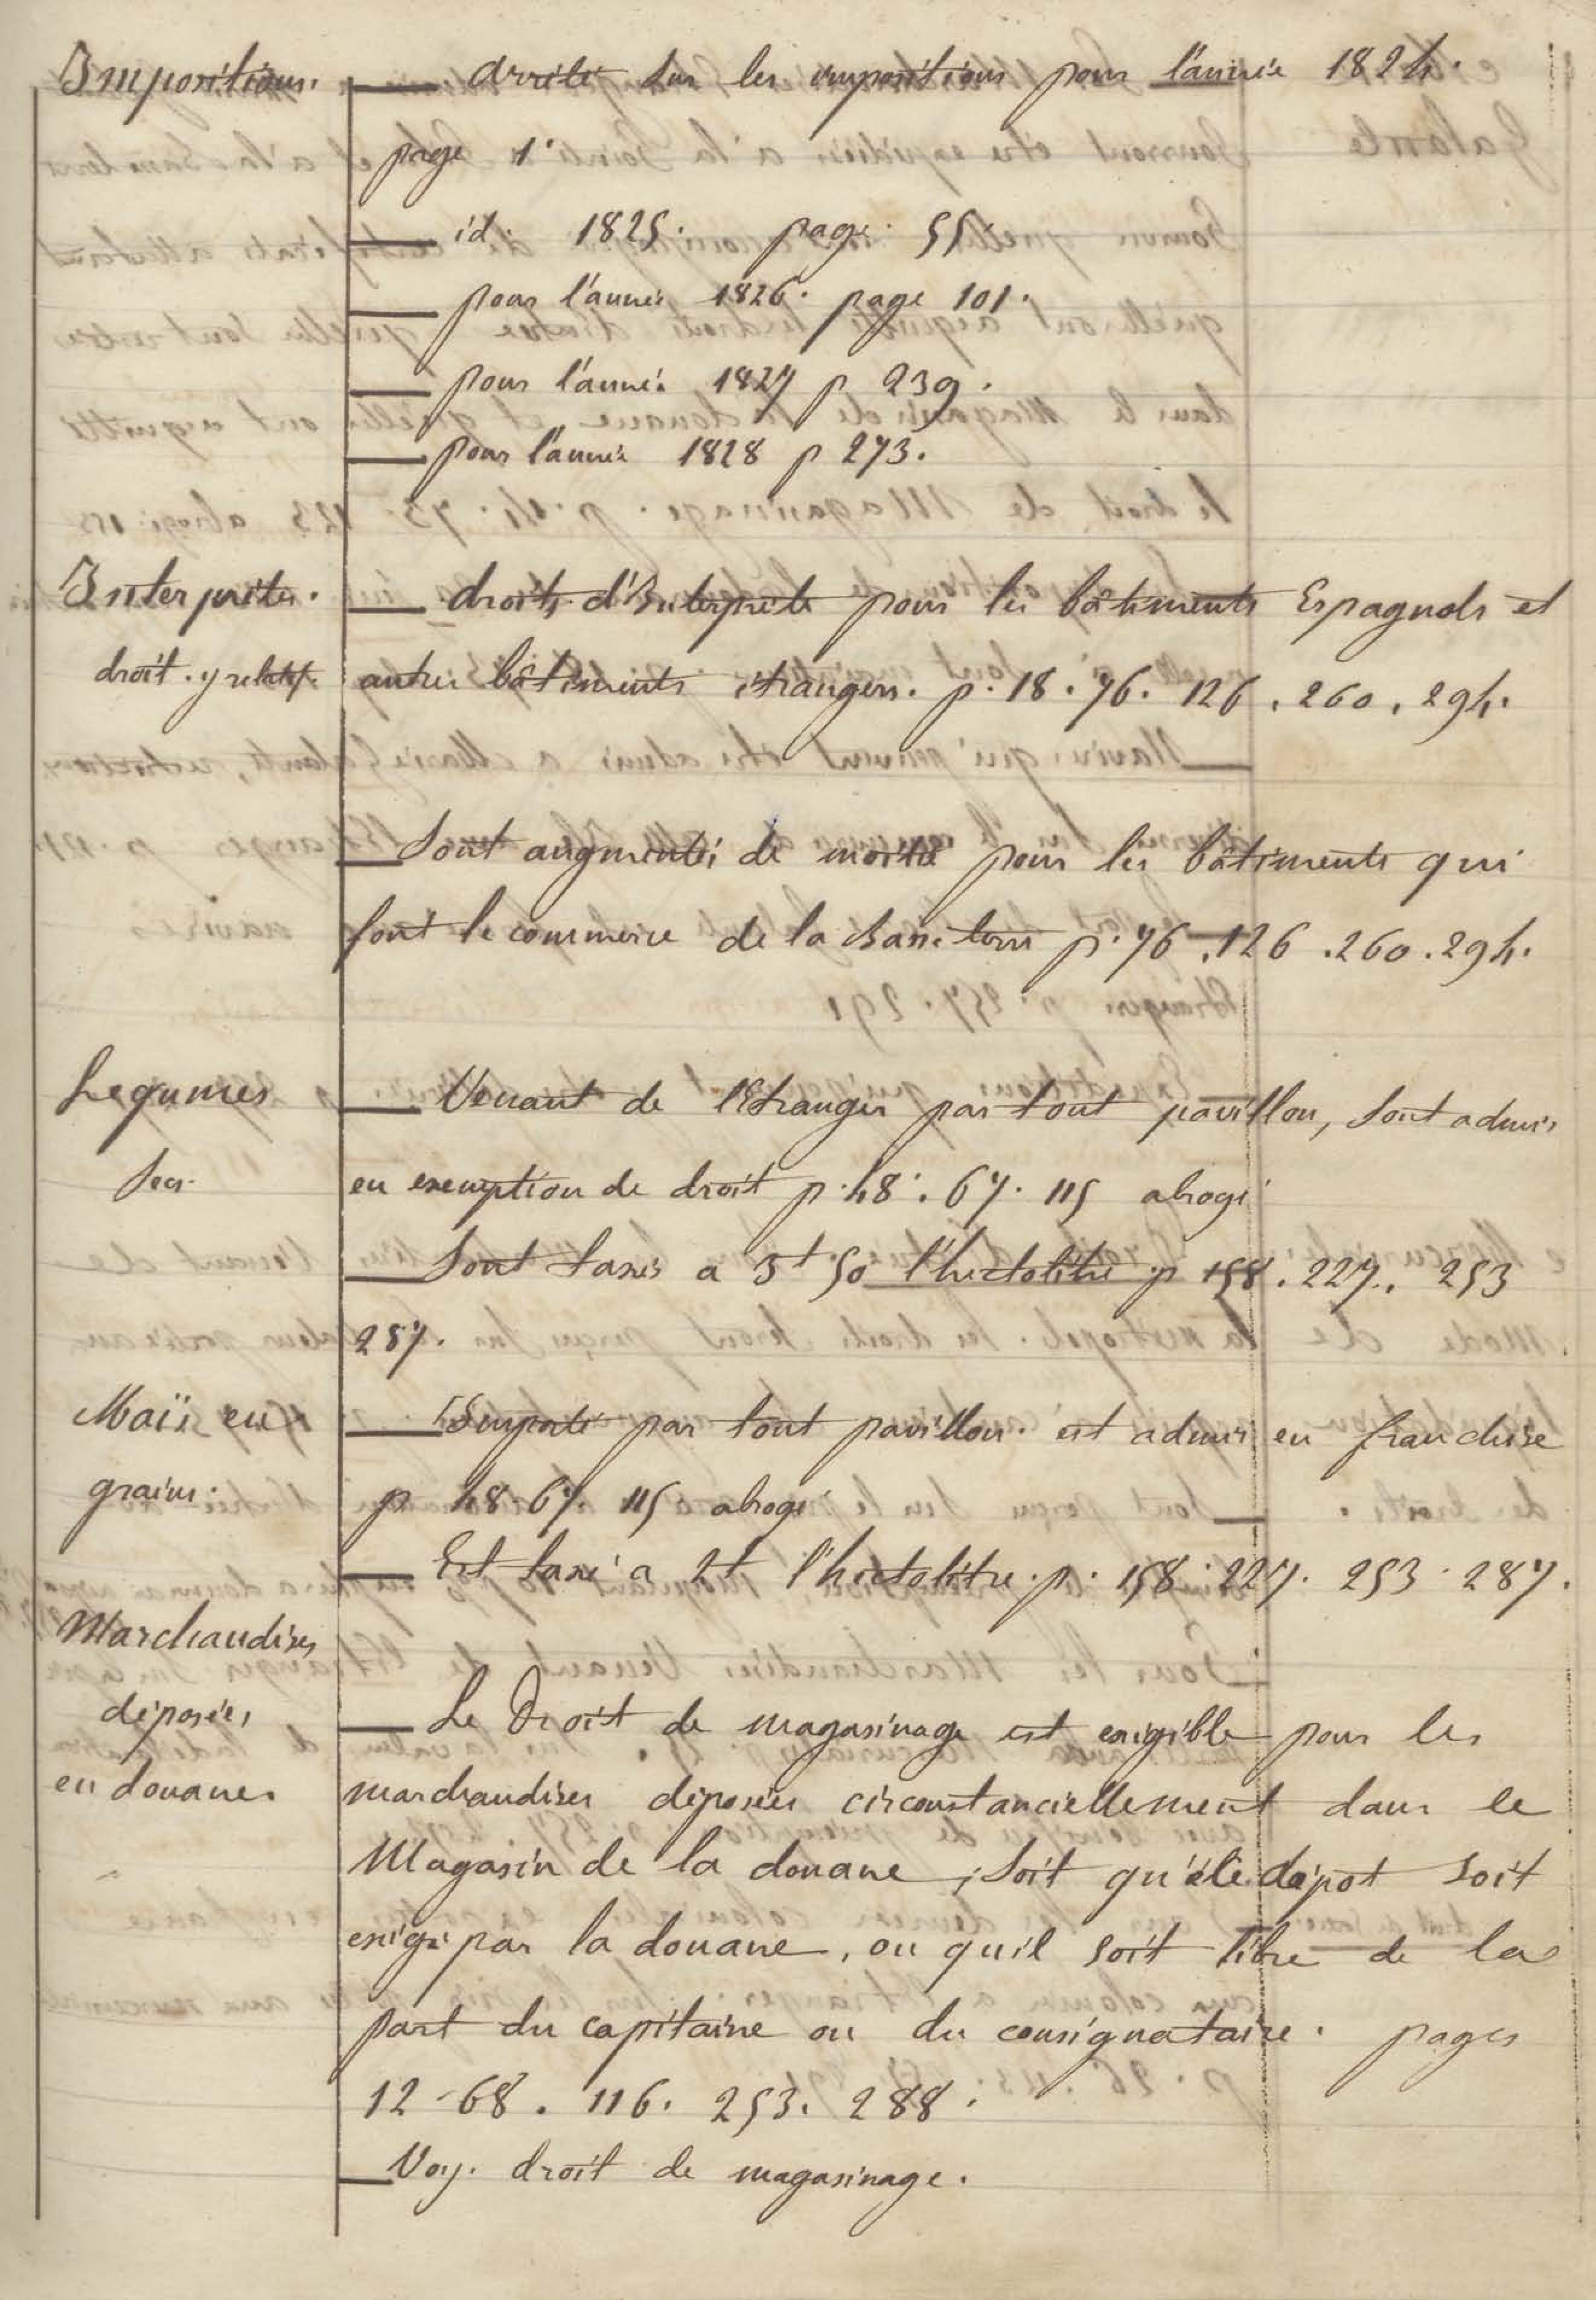 Impositions. — arrêté sur les impositions pour l'année 1824.
page 1.
— id. 1825. page. 55.
— pour l'année 1826. page 101.
— pour l'année 1827 p 239.
— pour l'année 1828 p 273.
Interprêtes. — droits d'Interprête pour les bâtiments Espagnols et
droit. y relatif. autres bâtiments étrangers. p. 18. 76. 126. 260. 294.
— Sont augmentés de moitié pour les bâtiments qui
font le commerce de la Basse terre p. 76. 126. 260. 294.
Legumes — Venant de l'Etranger par tout pavillon, sont admis
secs. en exemption de droit p. 48. 67. 115 abrogé
— Sont taxés a 3t 50 l'hectolitre p 158. 227. 253
287.
Maïs en — Importé par tout pavillon. est admis en franchise
grains. p 48. 67. 115 abrogé
— Est taxé a 2t l'hectolitre. p. 158. 227. 253. 287.
Marchandises
déposées — Le Droit de magasinage est exigible pour les
en douane. marchandises déposées circonstanciellement dans le
Magasin de la douane, soit que le dépot soit
exigé par la douane, ou qu'il soit libre de la
part du capitaine ou du consignataire. pages
12 - 68. 116. 253. 288.
— Voy. droit de magasinage.